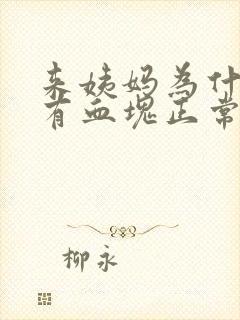 来姨妈为什
有血块正常
柳永